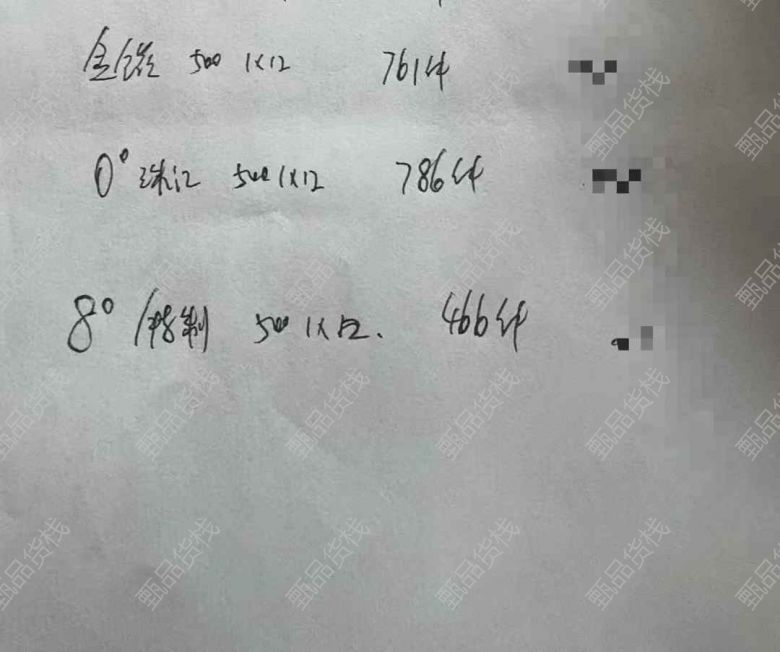 500 1×12 761件
0° 珠江 500 1×12 786件
8° 精制 500 1×12. 466件
甄品货栈